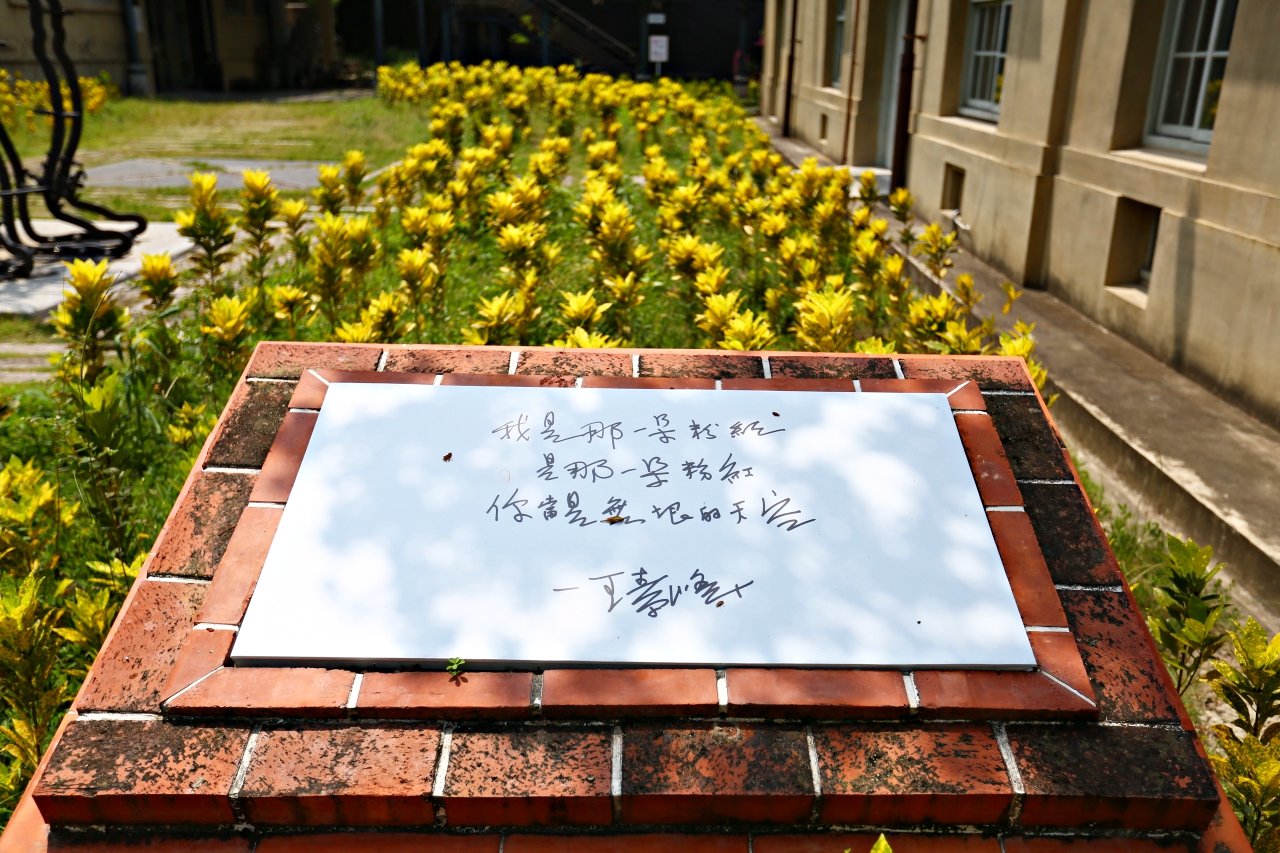 我是那一朵粉紅
是那一朵粉紅
你當是無垠的天空